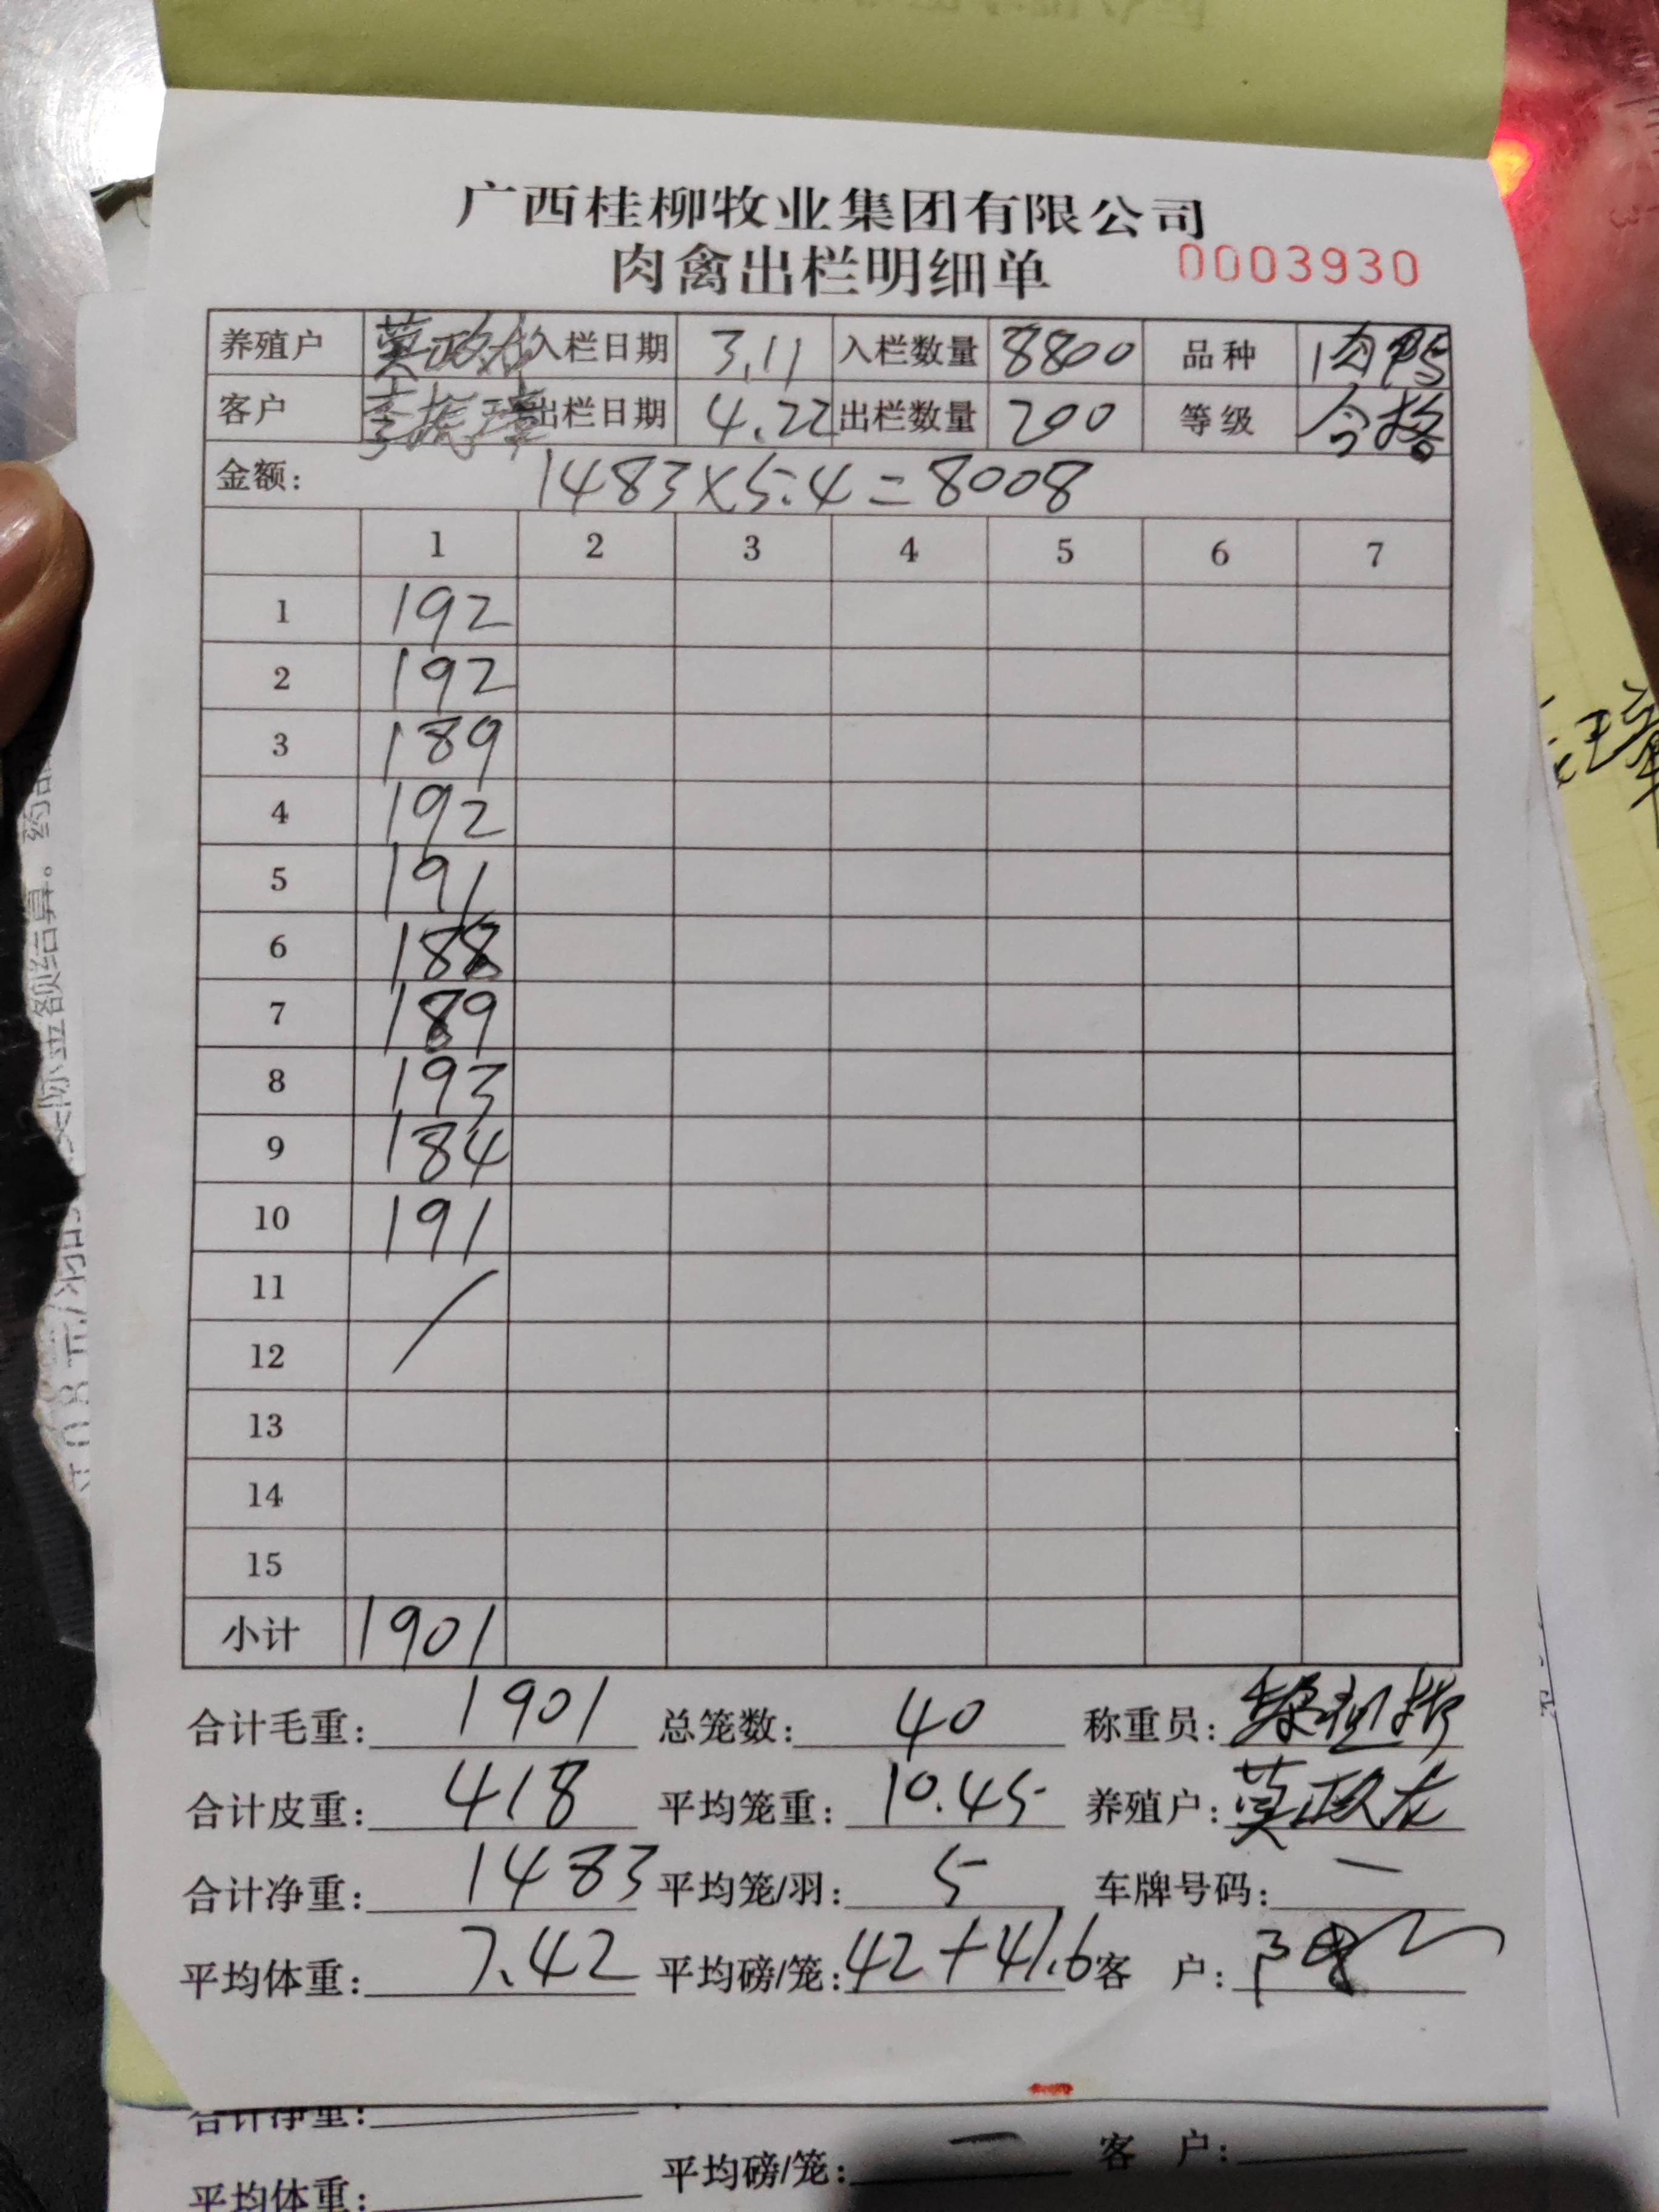 广西桂柳牧业集团有限公司
肉禽出栏明细单 0003930
养殖户 莫政龙 入栏日期 3.11 入栏数量 8800 品种 肉鸭
客户 李振璋 出栏日期 4.22 出栏数量 200 等级 合格
金额: 1483×5.4=8008
1 2 3 4 5 6 7
1 192
2 192
3 189
4 192
5 191
6 188
7 189
8 193
9 184
10 191
11
12
13
14
15
小计 1901
合计毛重: 1901 总笼数: 40 称重员:
合计皮重: 418 平均笼重: 10.45 养殖户: 莫政龙
合计净重: 1483 平均笼/羽: 5 车牌号码: 一
平均体重: 7.42 平均磅/笼: 42+41.6 客 户:
合计净重:
平均体重: 平均磅/笼: 一 客 户: